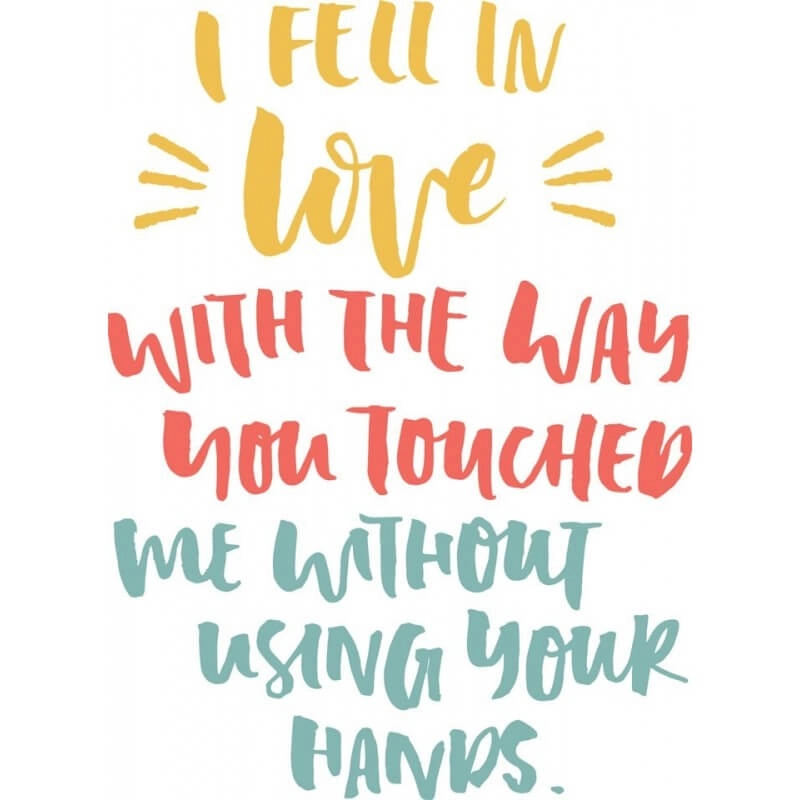 I FELL IN
love
WITH THE WAY
YOU TOUCHED
ME WITHOUT
USING YOUR
HANDS.